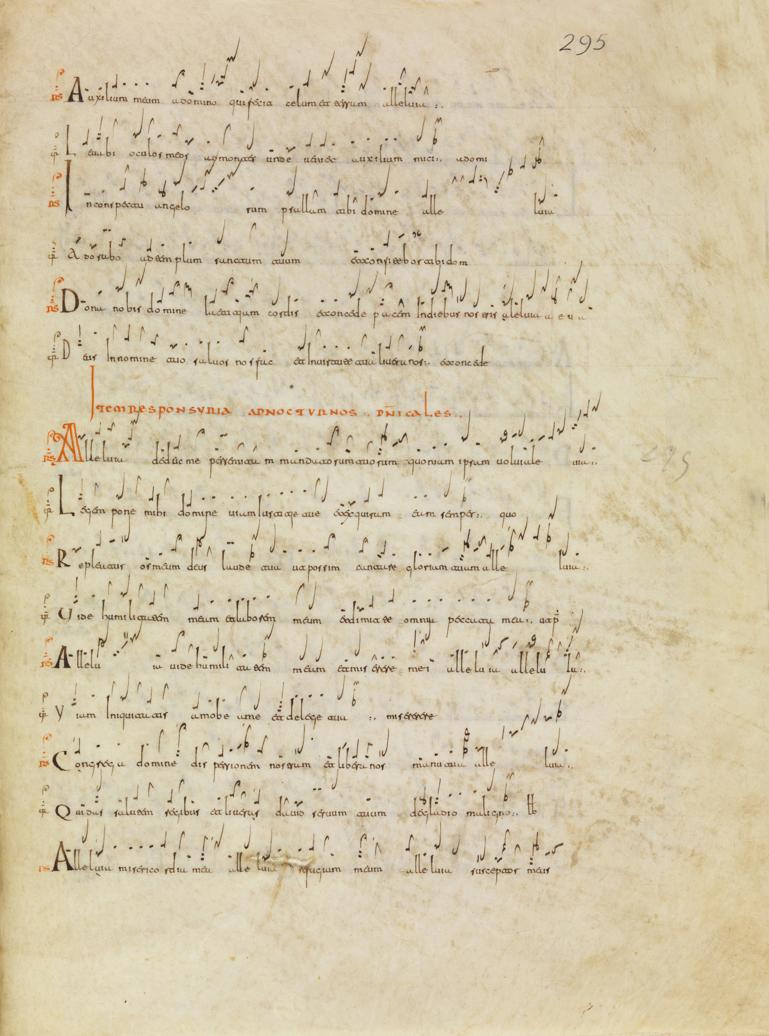 295
Auxilium meum adomino quifecia celum et terram alleluia :.
Leuabi oculos meos admontes unde ueniet auxilium mici :. adomi
Inconspectu angelorum psallam tibi domine alleluia
Adorabo adtemplum sanctum tuum et confitebor tibi dom
Dona nobis domine cordis et concede pacem Indiebus nostris alleluia a e u a
Deus Innomine tuo salbos nos fac et Inuirtute tua libera nos :. et concede
ITEM RESPONSURIA AD NOCTURNOS DNICALES
Alleluia deduc me mandatorum tuorum quoniam ipsam volui alleluia :.
Legem pone mihi domine uiam tue et exquiram eam semper :. quo
Repleatur os meum deus laude tua ut possim cantare gloriam tuam alleluia :.
Uide humilitatem meam et laborem meum et dimitte omnia peccata mea :.
Alleluia uide humilitatem meam et miserere mei alleluia alleluia :.
Viam Iniquitatis amobe ame et delege tua :. miserere
domine dis nostram et libera nos alleluia :.
Qui das salutem regibus et liberas dauid seruum tuum degladio maligno :.
Alleluia misericordia mea alleluia refugium meum alleluia susceptor meus